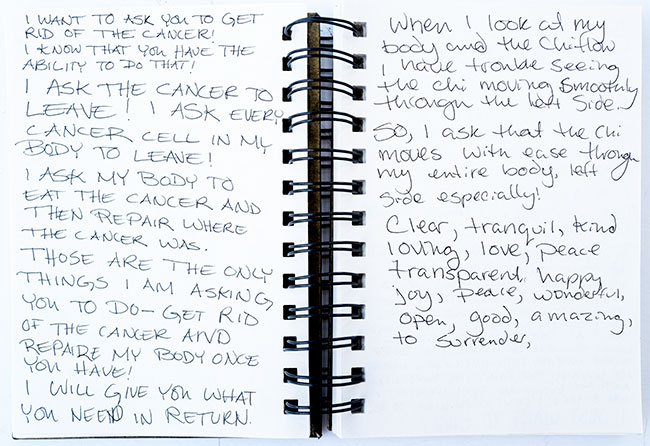 I WANT TO ASK YOU TO GET
RID OF THE CANCER!
I KNOW THAT YOU HAVE THE
ABILITY TO DO THAT!
I ASK THE CANCER TO
LEAVE! I ASK EVERY
CANCER CELL IN MY
BODY TO LEAVE!
I ASK MY BODY TO
EAT THE CANCER AND
THEN REPAIR WHERE
THE CANCER WAS.
THOSE ARE THE ONLY
THINGS I AM ASKING
YOU TO DO- GET RID
OF THE CANCER AND
REPAIRE MY BODY ONCE
YOU HAVE!
I WILL GIVE YOU WHAT
YOU NEED IN RETURN.
When I look at my
body and the Chiflow
I have trouble seeing
the chi moving smoothly
through the left side.
So, I ask that the chi
moves with ease through
my entire body, left
side especially!
Clear, tranquil, kind
loving, love, peace
transparent, happy
joy, peace, wonderful,
open, good, amazing,
to surrender,